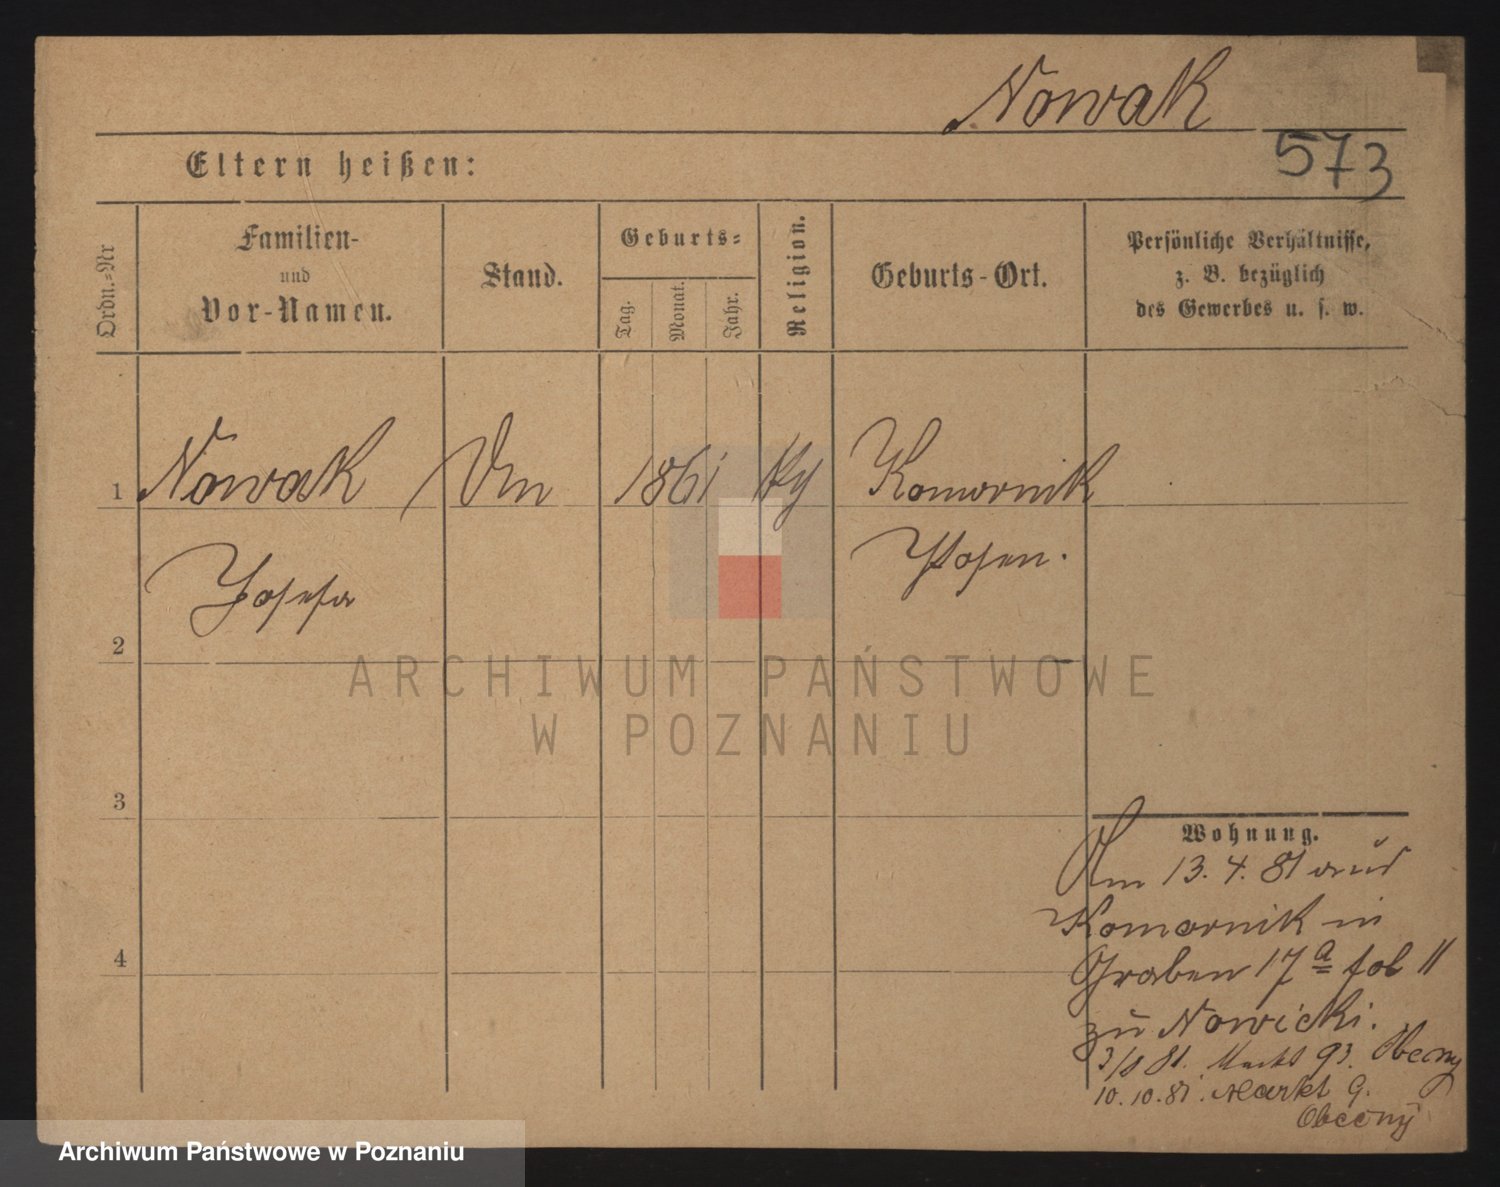 Nowak
573
Eltern heißen:
Ordn.-Nr
Familien-
und
Vor-Namen.
Stand.
Geburts-
Tag.
Monat.
Jahr.
Religion.
Geburts-Ort.
Persönliche Verhältnisse,
z. B. bezüglich
des Gewerbes u. s. w.
1 Nowak 1861 Komornik
Josefa Posen.
2
3
4
Wohnung.
Am 13. 4. 81 aus
Komornik in
Graben 17 a
zu Nowicki.
81. Markt 93. Obecny
10. 10. 81. Markt 9.
Obecny
ARCHIWUM PAŃSTWOWE
W POZNANIU
Archiwum Państwowe w Poznaniu